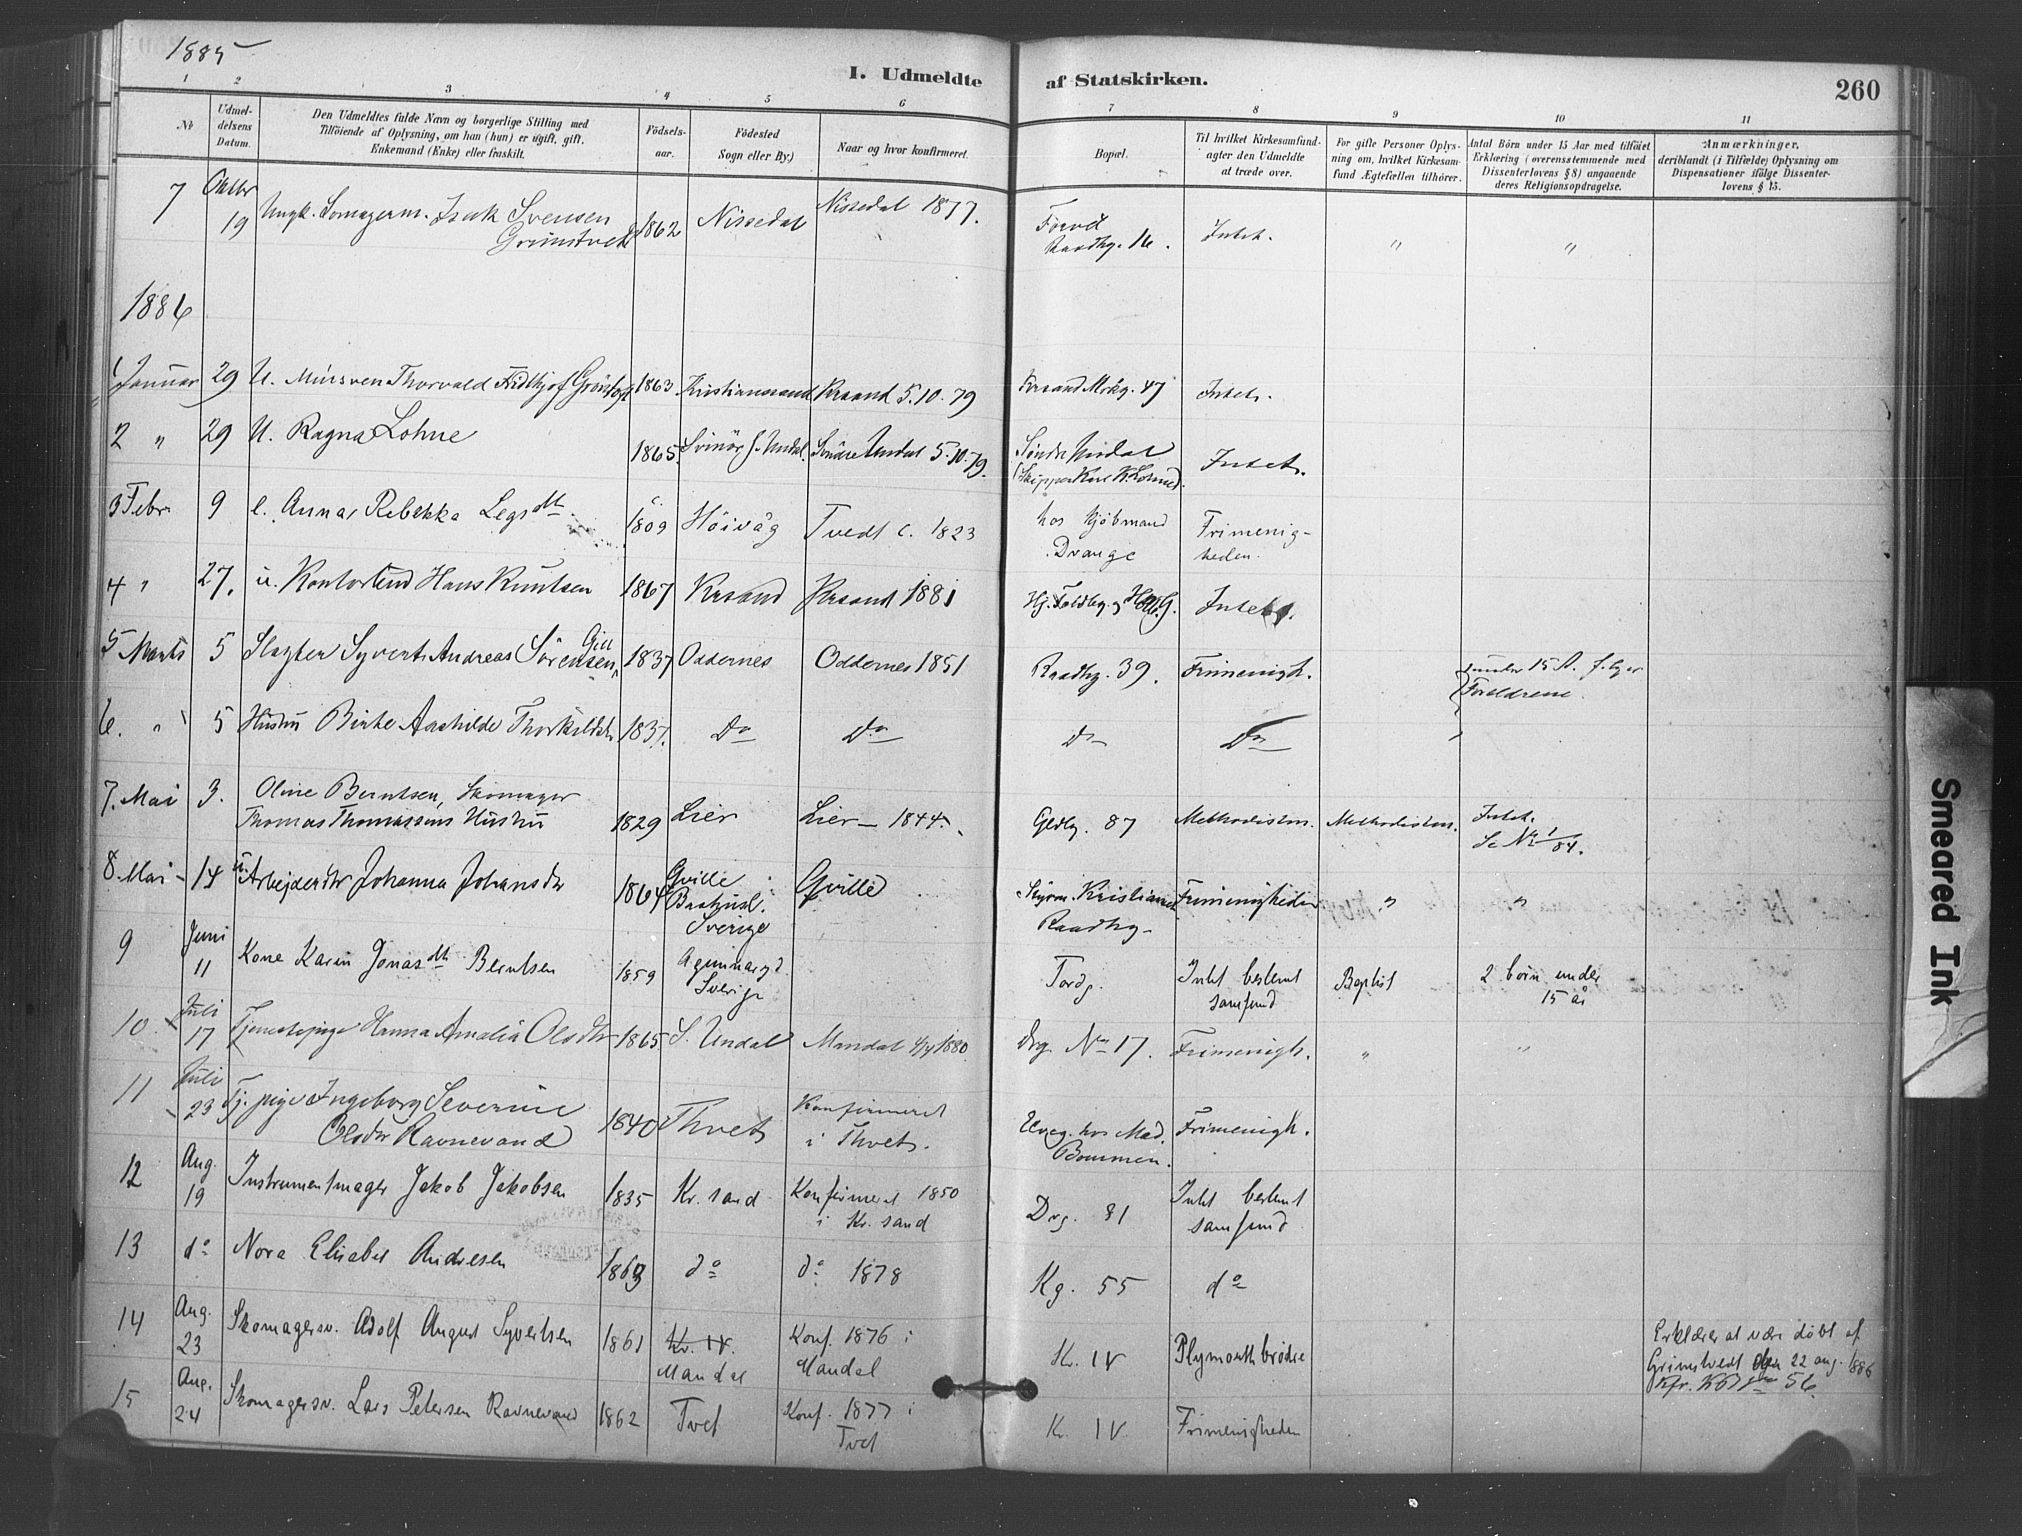 1885
I. Udmeldte af Statskirken.
260
1 2 3 4 5 6 7 8 9 10 11
No
Udmel-
delsens
Datum.
Den Udmeldtes fulde Navn og borgerlige Stilling med
Tilføiende af Oplysning, om han (hun) er ugift, gift,
Enkemand (Enke) eller fraskilt.
Fødsels-
aar.
Fødested
Sogn eller By.)
Naar og hvor konfirmeret.
Bopæl.
Til hvilket Kirkesamfund-
agter den Udmeldte
at træde over.
For gifte Personer Oplys-
ning om, hvilket Kirkesam-
fund Ægtefællen tilhører.
Antal Børn under 15 Aar med tilføiet
Erklæring (overensstemmende med
Dissenterlovens § 8) angaaende
deres Religionsopdragelse.
Anmærkninger,
deriblandt (i Tilfælde) Oplysning om
Dispensationer ifølge Dissenter-
lovens § 15.
7 Oktbr 19 Ungk. Somagerm. Isak Svensen
Grimstvedt 1862 Nissedal Nissedal 1877.
Raadhg. 16. Intet. " "
1886
1 Januar 29 U. Mursven Thorvald Fridthjof 1863 Kristianssand Krsand 5.10.79 Krsand 47 Intet.
2 " 29 U. Ragna Lohne 1865. Svinør S. Undal. Søndre Undal 5.10.79.
Intet.
3 Febr 9 e. Anna Rebekka Legsdtt. c. 1809 Høivåg Tvedt c. 1823 hos Kjøbmand
Drange Frimenig-
heden.
4 " 27. u. Hans Knutsen 1867 Krsand Krsand 1881 Intet.
5 Marts 5 Slagter Syvert Andreas Sörensen Gill 1837 Oddernes Oddernes 1851 Raadhg. 39. Frimenigh. under 15 A. følger
Foreldrene.
6. " 5 Hustru Birte Aashilde 1837. Do Do Do Do
7. Mai 3. Oline Berntsen, Skomager
Thomas Thomassens Hustru 1829 Lier Lier 1844. Gldg. 87 Methodisten. Methodisten. Intet.
Se No 1/84.
8. Mai 14 u. Arbejderske Johanna Johansdtr 1864 Qville
Baahusl.
Sverige Qville Styrm. Kristiansen
Raadhg. Frimenigheden " "
9 Juni
11 Kone Karen Jonasdtt Berntsen 1859
Sverige Tordg. Intet bestemt
samfund Baptist 2 børn under
15 år
10. Juli
17 Tjenestepige Hanna Amalia Olsdtr 1865 S. Undal Mandal 4/4 1880 Drg No 17. Frimenigh. " "
11 Juli
23 Tj. pige Ingeborg Severine
Olsdtr Ravnevand 1840 Thvet Konfirmeret
i Thvet. Elveg. hos Mad.
Bommen. Frimenigh.
12 Aug.
19 Instrumentmager Jakob Jakobsen 1835 Kr. sand Konfirmeret 1850
i Kr. sand Drg. 81 Intet bestemt
samfund
13 do Nora Elisabet Andresen 1863 do do 1878 Kg. 55 do
14 Aug.
23 Skomagersv. Adolf August Syvertsen 1861 Kr. IV.
Mandal Konf. 1876 i
Mandal Kr. IV Plymouthbrødre Erklærer at være døbt af
Grimstvedt den 22 aug. 1886
15 Aug.
24 Skomagersv. Lars Petersen Ravnevand 1862 Tvet Konf. 1877 i
Tvet Kr. IV. Frimenigheden
Smeared Ink